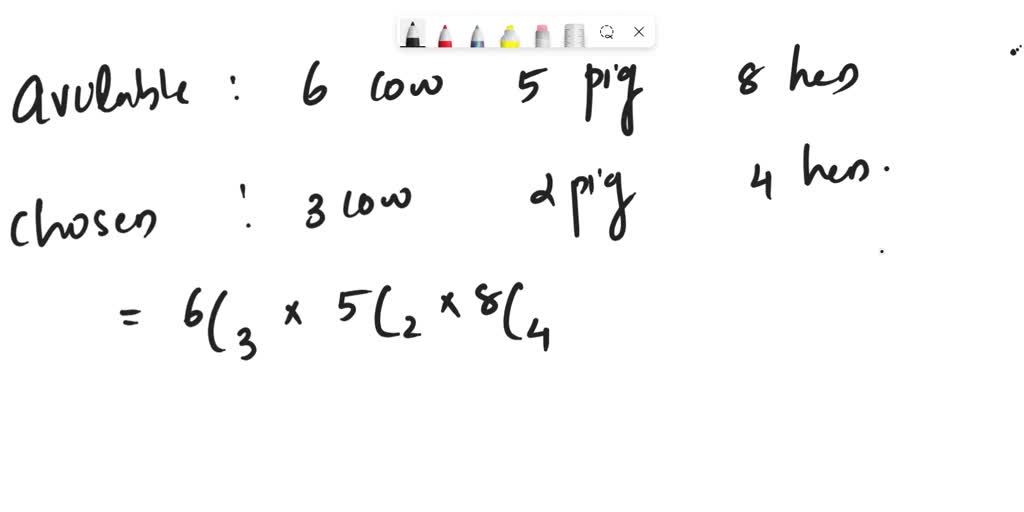 Avulable : 6 cow 5 pig 8 hen
Chosen : 3 cow 2 pig 4 hen.
= 6C3 × 5C2 × 8C4